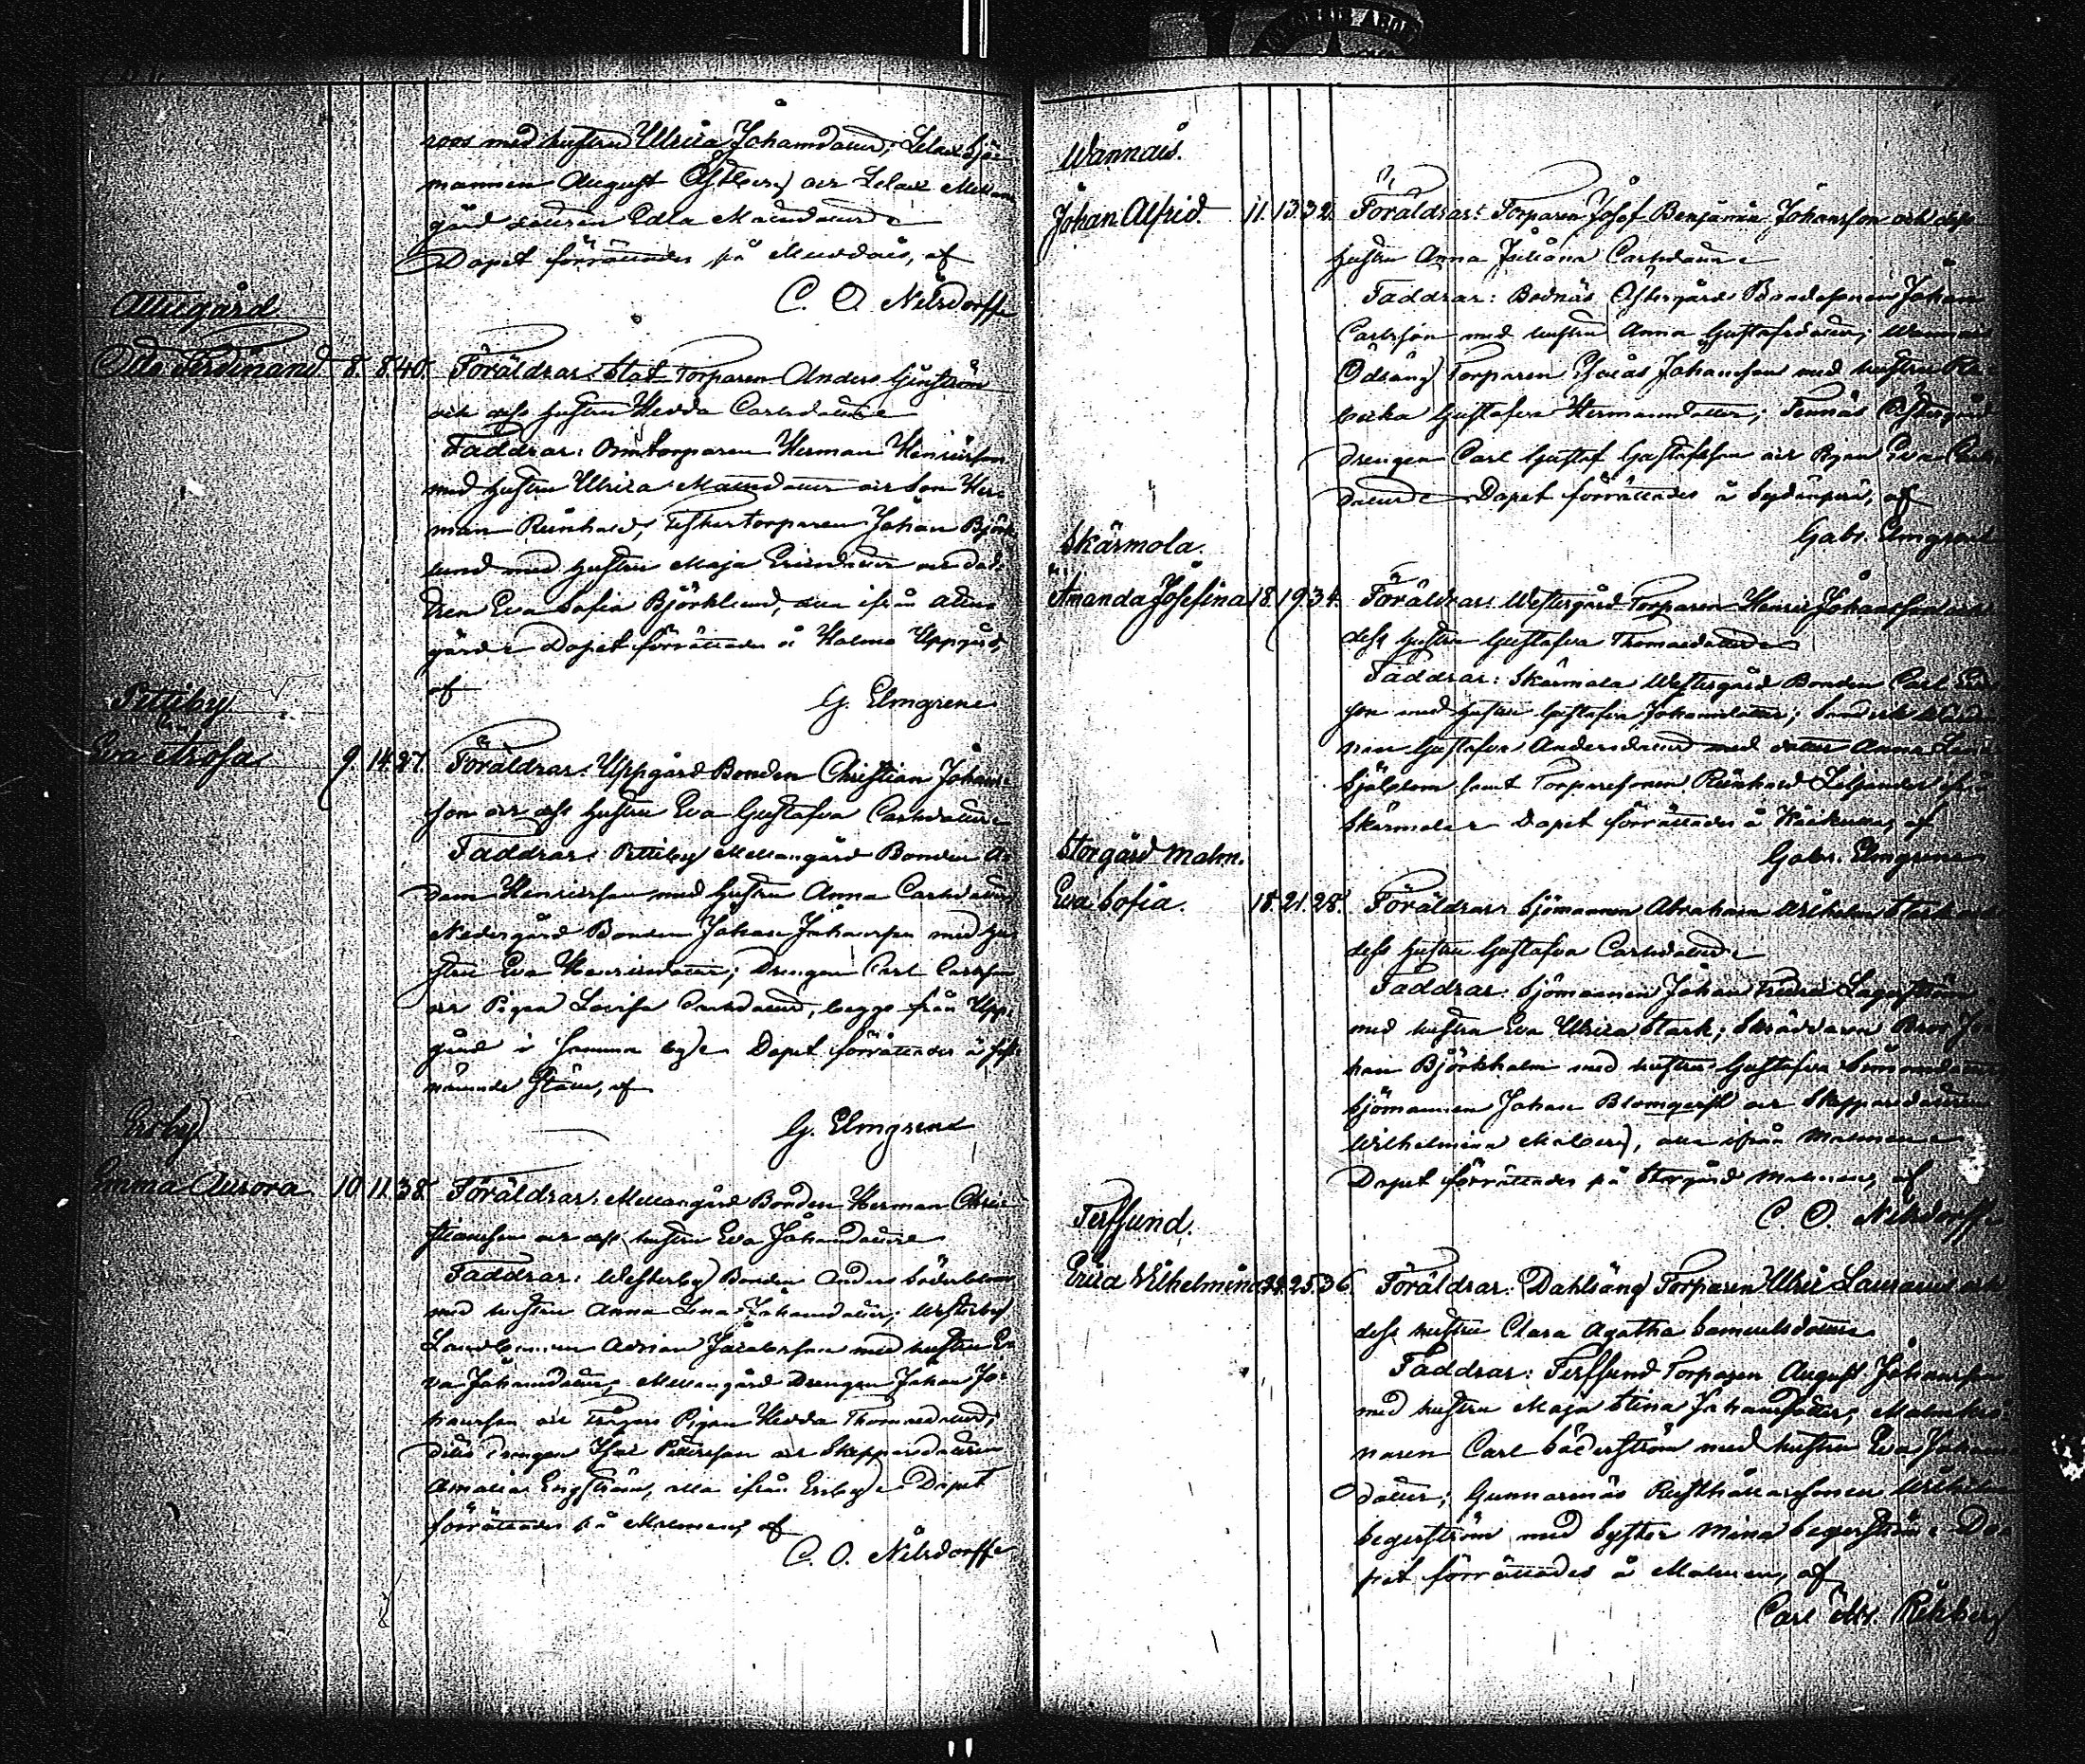 roos med hustru Ulrica Johansdotter, Lelax Sjö-
mannen August Östberg och Lelax Mellan-
gård Edla
Dopet förrättades på Muddais, af
C. O. Nilsdorff
Attugård
Otto Ferdinand 8. 8. 40. Föräldrar: Stat Torparen Anders
och dess hustru Hedda Carlsdotter
Faddrar: Torparen Herman Henricsson
med hustru Ulrica Matsdotter och Son Her-
man Reinhold, Torparen Johan Björk-
lund med hustru Maja Ericsdotter och
Eva Sofia Björklund, alla ifrån Attu-
gård Dopet förrättades å Holma Uppgård,
af
G. Elmgren
Pettiby
Eva Rosa 9. 14. 27. Föräldrar: Uppgård Bonden Christian Johans-
son och dess hustru Eva Gustafva Carlsdotter
Faddrar: Pettiby Mellangård Bonden A-
dam Henricsson med hustru Anna Carlsdotter
Nedergård Bonden Johan Johansson med hu-
stru Eva Henricsdotter; Drengen Carl Carlsson
och Pigan Lovisa Carlsdotter, begge från Upp-
gård i samma by Dopet förrättades å
nämnde ställe, af
G. Elmgren
Ersby
Emma Aurora 10. 11. 38. Föräldrar: Mellangård Bonden Herman Chri-
stiansson och dess hustru Eva Johansdotter
Faddrar: Westerby Bonden Anders Söderblom
med hustru Anna Lena Johansdotter; Westerby
Adrian Jacobsson med hustru E-
va Johansdotter, Mellangård Drengen Johan Jo-
hansson och Pigan Hedda Thomasdotter,
dito Drengen Isac Pettersson och Skeppardottren
Amalia Engström, alla ifrån Ersby Dopet
förrättades på Malmen, af
C. O. Nilsdorff
Wannais.
Johan Alfrid. 11. 13. 32. Föräldrar: Torparen Josef Benjamin Johansson och dess
hustru Anna Juliana Carlsdotter
Faddrar: Bodnäs Östergård Bondesonen Johan
Carlsson med hustru Anna Gustafsdotter; Wannais
Ödsäng Torparen Johansson med hustru Re-
becka Gustafva Hermansdotter; Tennäs Östergård
drengen Carl Gustaf Gustafsson och Pigan Eva Carls-
dotter Dopet förrättades å af
Gabr. Elmgren
Skärmola.
Amanda Josefina 18. 19. 34. Föräldrar: Westergård Torparen Henric Johansson och
dess hustru Gustafva Thomasdotter
Faddrar: Skärmola Westergård Bonden Carl
son med hustru Gustafva Johansdotter;
Gustafva Andersdotter med dotter Anna Lena
Sjöblom samt Torparesonen Reinhold Liljander ifrån
Skärmola Dopet förrättades å af
Gabr. Elmgren
Storgård Malm.
Eva Sofia. 18. 21. 28. Föräldrar: Sjömannen Abraham Wilhelm Stark och
dess hustru Gustafva Carlsdotter
Faddrar: Sjömannen Johan Fredric Lagerström
med hustru Eva Ulrica Stark; Skräddaren Jo-
han Björkholm med hustru Gustafva Simonsdotter
Sjömannen Johan Blomqvist och Skeppardottren
Wilhelmina Malberg, alla ifrån Malmen
Dopet förrättades på Storgård Malmen, af
C. O. Nilsdorff
Terssund.
Erica Wilhelmina 24. 25. 36. Föräldrar: Dahlsäng Torparen Ulric Laurand och
dess hustru Clara Agatha Samuelsdotter
Faddrar: Terssund Torparen August Johansson
med hustru Maja Stina Johansdotter, Malm
naren Carl Söderström med hustru Eva Johans-
dotter; Gunnarnäs Rusthållarsonen Wilhelm
Segerström med Syster Mina Segerström Do-
pet förrättades å Malmen, af
Carl